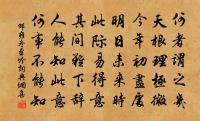 何者謂之幾
天根理極微
今年初盡處
明日未來時
此際易得意
其間難下辭
人能知此意
何事不能知
邵雍冬至吟詞典網